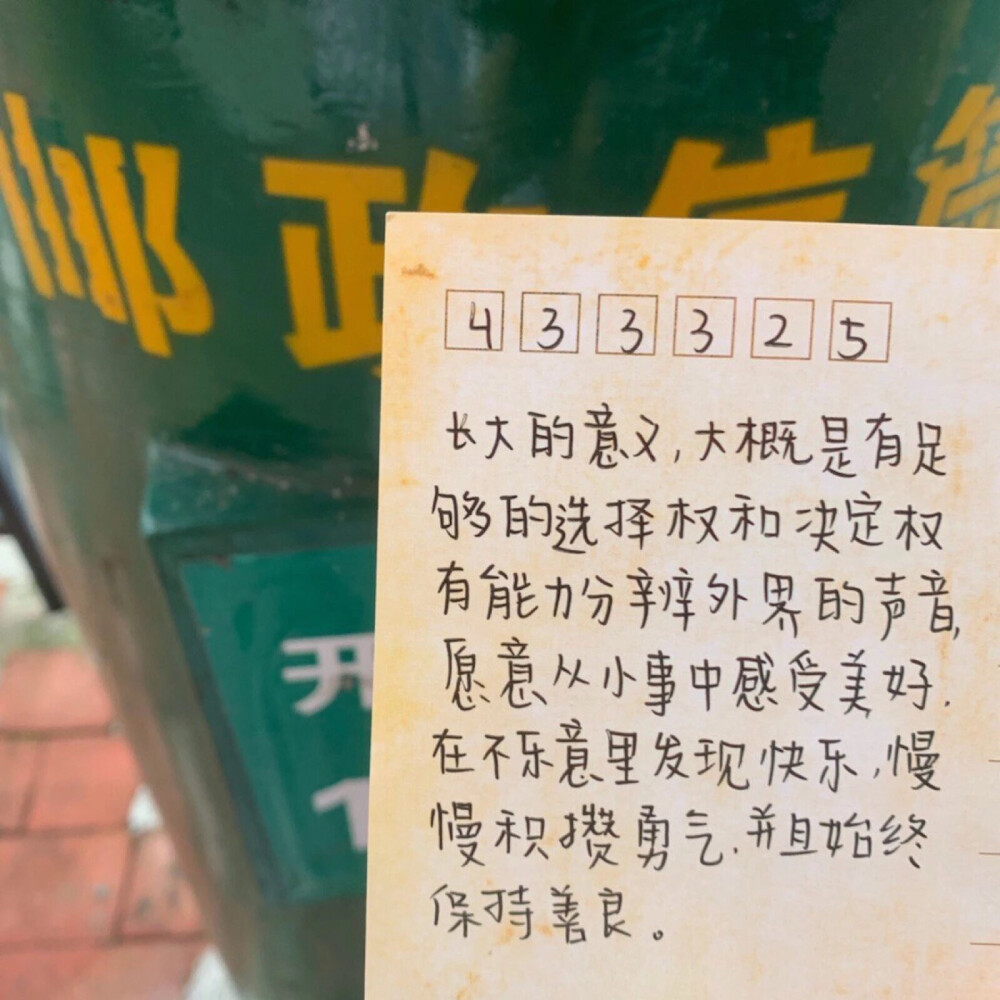 邮政信筒
开
1
433325
长大的意义,大概是有足
够的选择权和决定权
有能力分辨外界的声音,
愿意从小事中感受美好.
在不乐意里发现快乐,慢
慢积攒勇气.并且始终
保持善良。